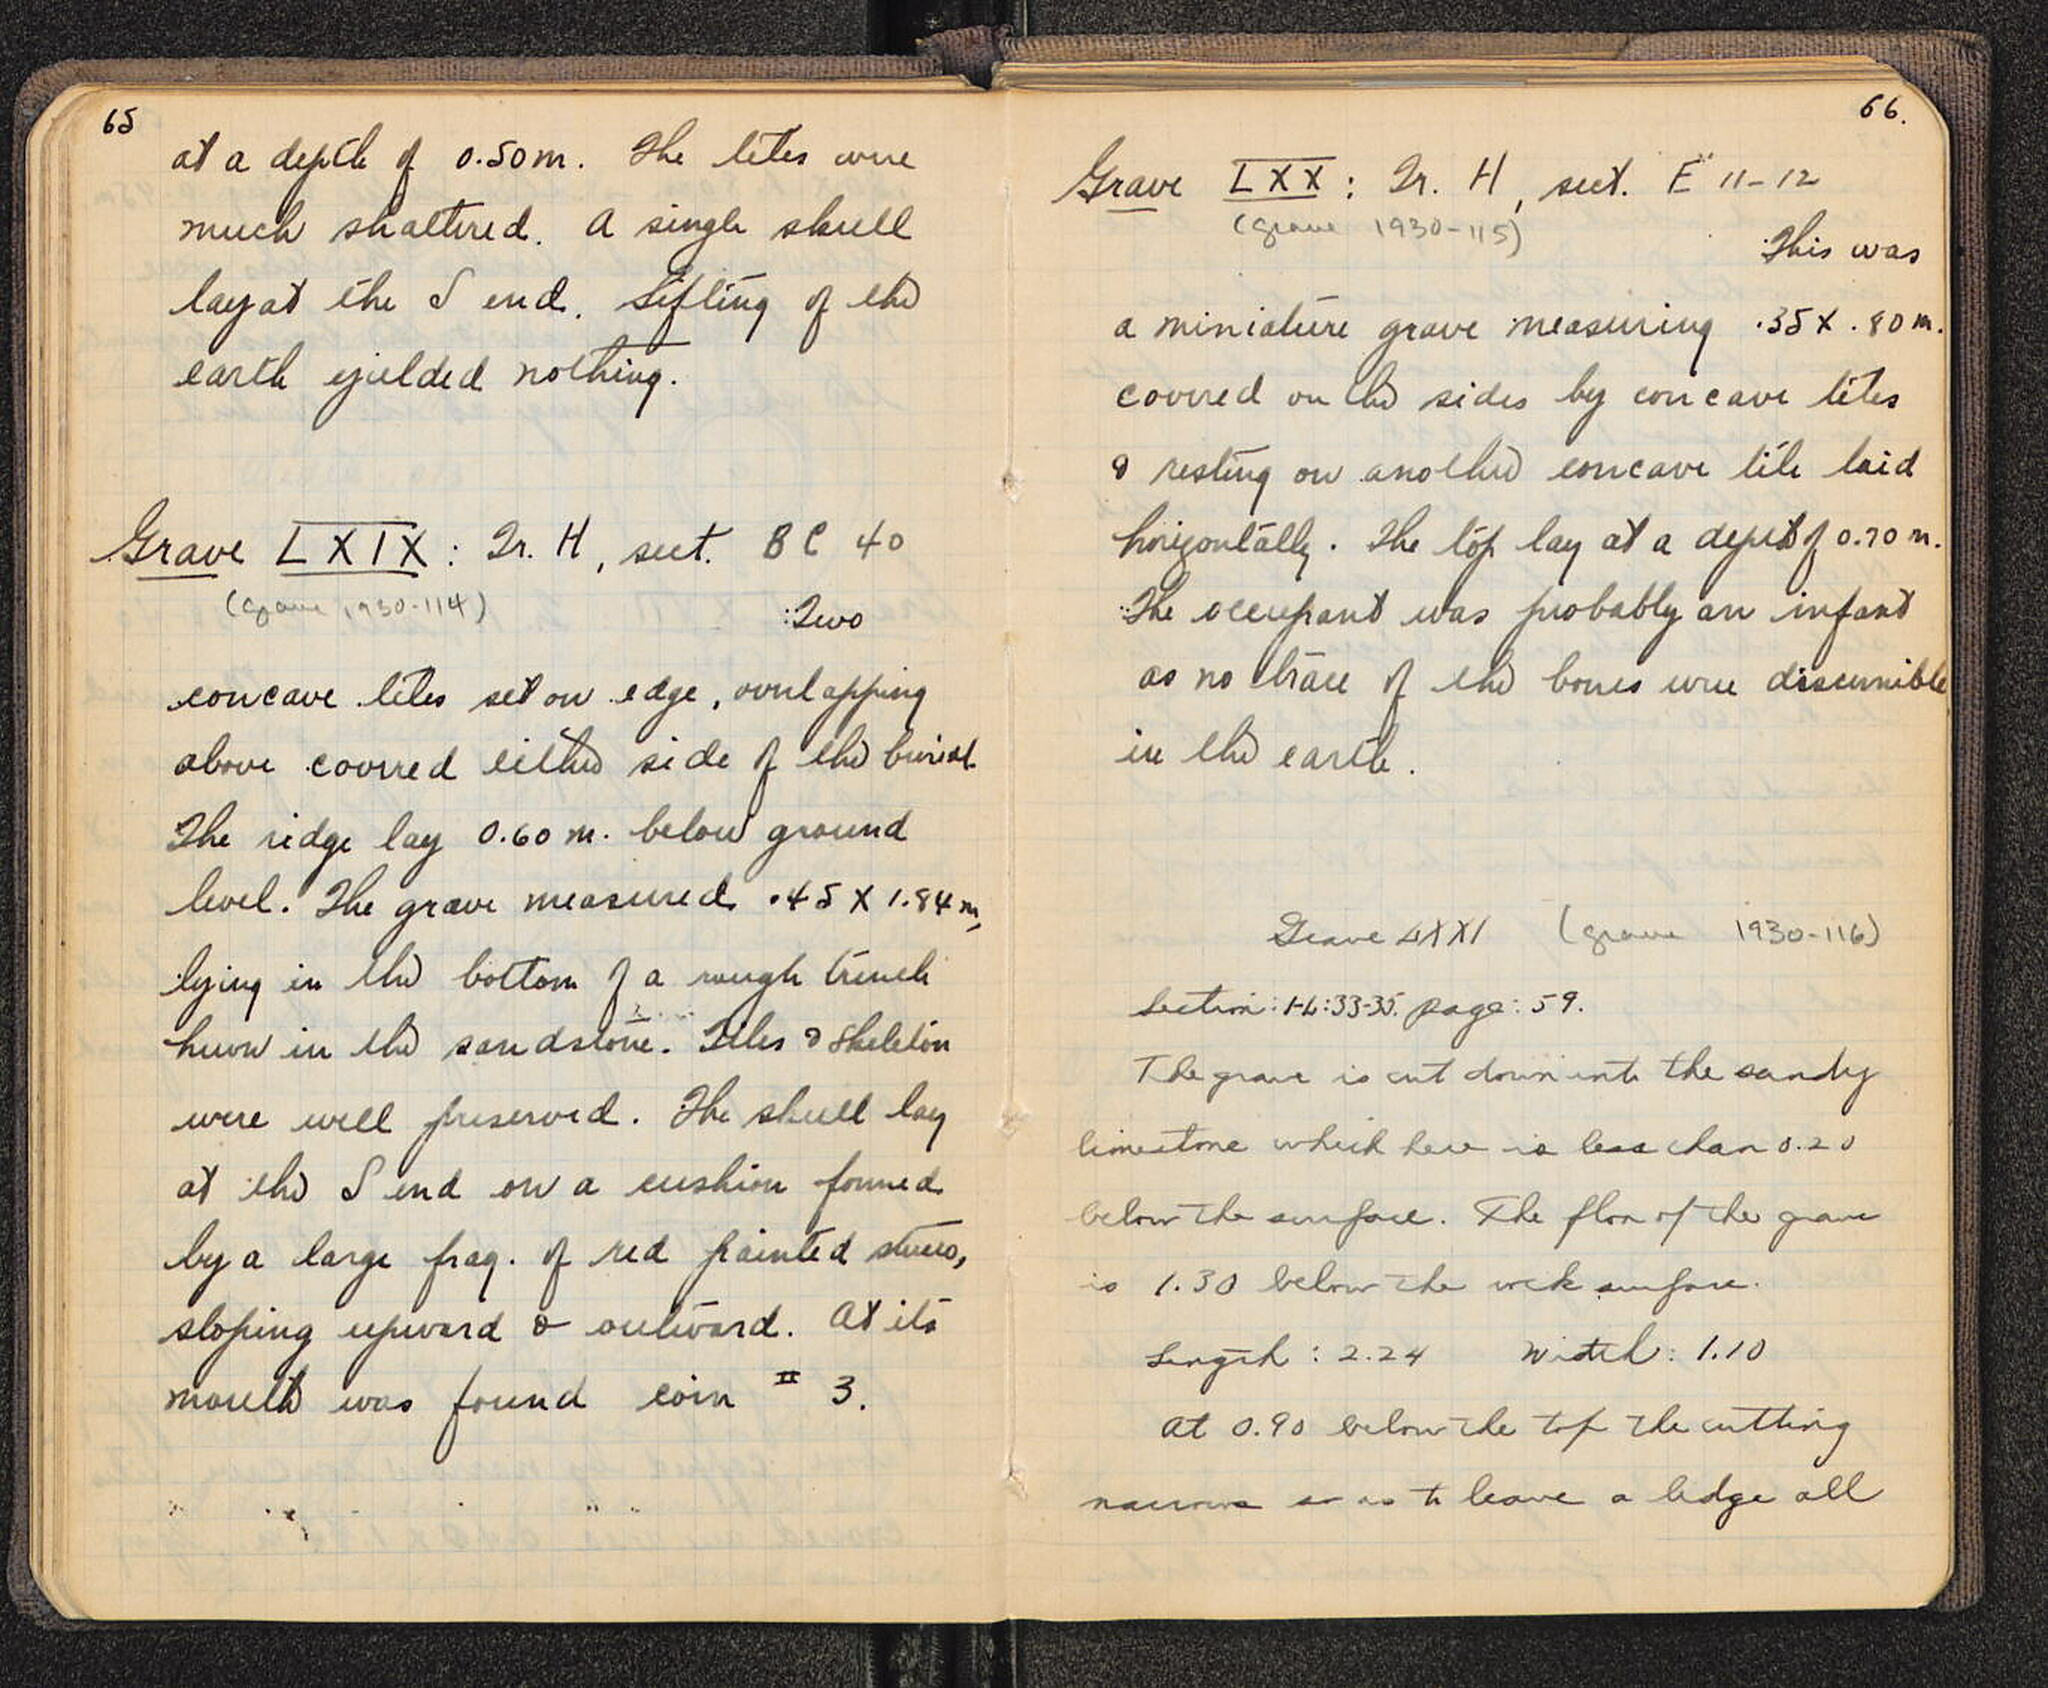 65
at a depth of 0.50 m. The tiles were
much shattered. A single skull
lay at the S end. Sifting of the
earth yielded nothing.
Grave LXIX: Tr. H, sect. BC 40
(grave 1930-114)
Two
concave tiles set on edge, overlapping
above covered either side of the burial.
The ridge lay 0.60 m. below ground
level. The grave measured .45 x 1.84 m,
lying in the bottom of a rough trench
hewn in the sandstone. Tiles & skeleton
were well preserved. The skull lay
at the S end on a cushion formed
by a large frag. of red painted stucco,
sloping upward & outward. At its
mouth was found coin # 3.
66.
Grave LXX: Tr. H, sect. E 11-12
(grave 1930-115)
This was
a miniature grave measuring .35 x .80 m.
covered on the sides by concave tiles
& resting on another concave tile laid
horizontally. The top lay at a depth of 0.70 m.
The occupant was probably an infant
as no trace of the bones were discernible
in the earth.
Grave LXXI (grave 1930-116)
Section: 33-35. page: 59.
The grave is cut down into the sandy
limestone which here is less than 0.20
below the surface. The floor of the grave
is 1.30 below the rock surface.
Length: 2.24 Width: 1.10
At 0.90 below the top the cutting
narrows so as to leave a ledge all